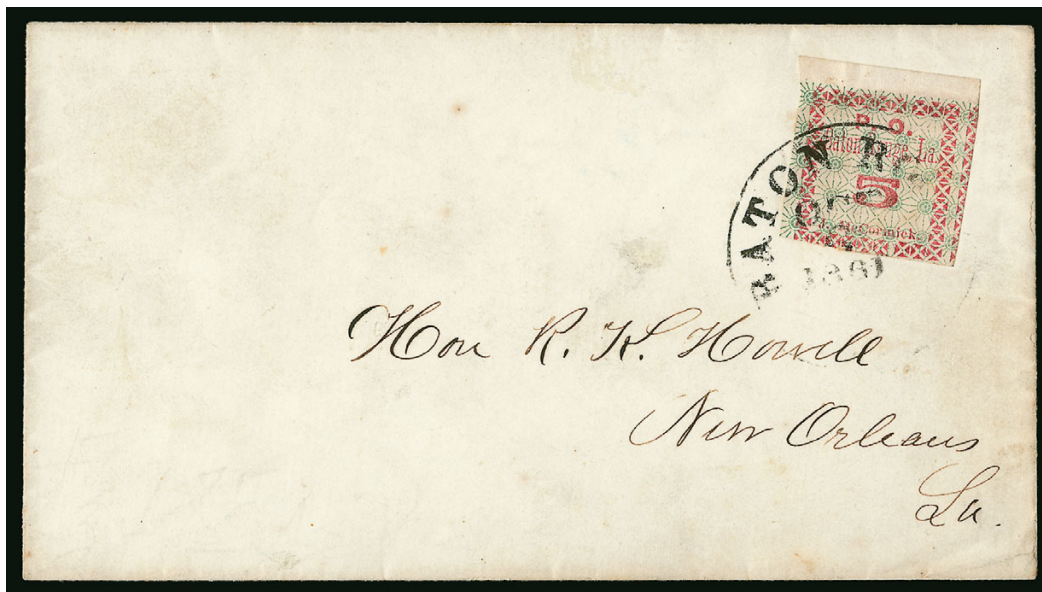 P. O.
Baton Rouge, La.
5
McCormick.
BATON R
1861
Hon R. K. Howell
New Orleans
La.